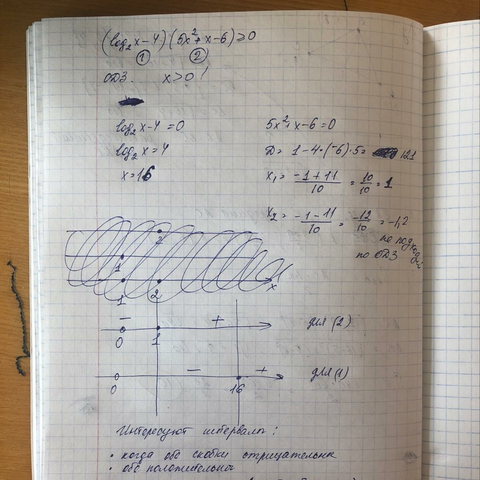 (log₂x-4)(5x²+x-6)≥0
① ②
ОДЗ. x>0!
log₂x-4=0
log₂x=4
x=16
5x²+x-6=0
D=1-4·(-6)·5= 121
x₁= (-1+11)/10 = 10/10 = 1
x₂= (-1-11)/10 = -12/10 = -1,2
по
по ОДЗ
2
1
1 2 x
- +
0 1 для (2)
- +
0 16 для (1)
Интересуют интервалы:
• когда обе скобки отрицательны
• обе положительны